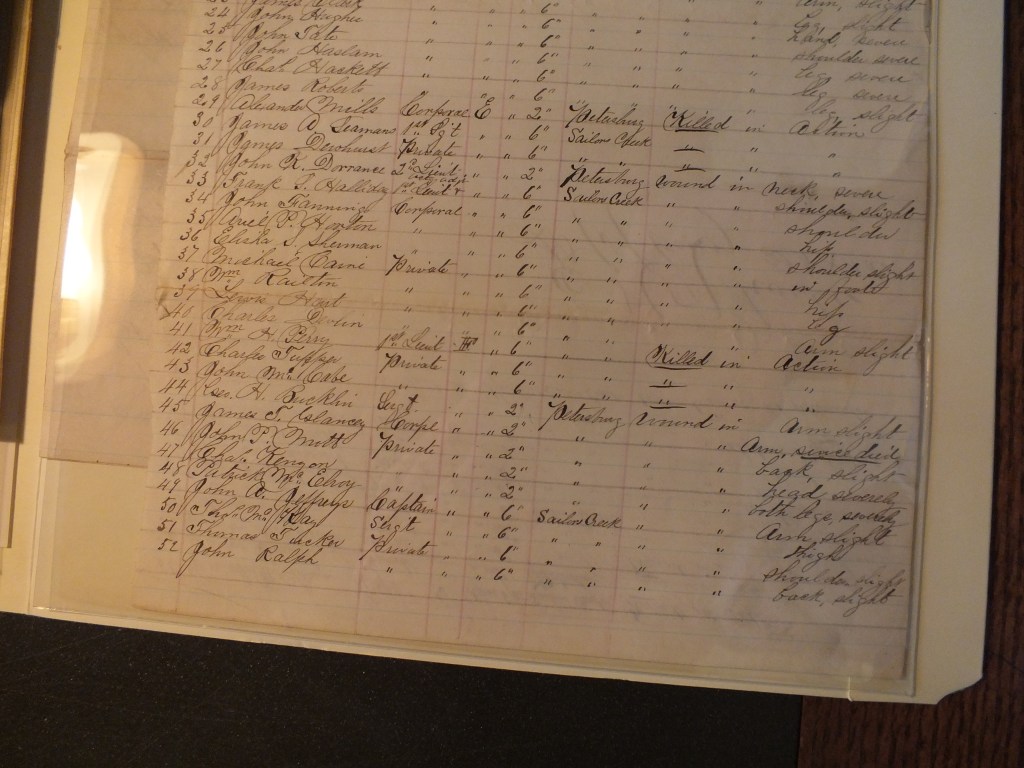 24 John Hughes " " " 6" " " " " Leg, slight
25 John Tate " " " 6" " " " " hand, severe
26 John Haslam " " " 6" " " " " shoulder severe
27 Chas Hackett " " " 6" " " " " leg severe
28 James Roberts " " " 6" " " " " leg severe
29 Mills Corporal E " " 2" Petersburg Killed in Action
30 James A Seamans 1st Sgt " " 6" Sailors Creek " " "
31 James Dewhurst Private " " 6" " " " " "
32 John K. Dorrance 2d Lieut " " 2" Petersburg wound in neck, severe
33 Frank S. Halliday 1st Lieut " " 6" Sailors Creek " " shoulder, slight
34 John Fanning Corporal " " 6" " " " " shoulder
35 P. Horton " " " 6" " " " " hip
36 Elisha S. Sherman " " " 6" " " " " shoulder slight
37 Michael Caine Private " " 6" " " " " in foot
38 Wm Railton " " " 6" " " " " hip
39 Lewis Hart " " " 6" " " " " leg
40 Charles Devlin " " " 6" " " " " arm slight
41 Wm H. Perry 1st Lieut " H " 6" " " Killed in Action
42 Charlie Tupper Private " " 6" " " " " "
43 John McCabe " " " 6" " " " " "
44 Geo. H. Bucklin Sergt " " 2" Petersburg wound in Arm slight
45 James T. Corpl " " 2" " " " Arm, since died
46 John F. Private " " 2" " " " back, slight
47 Chas. Kenyon " " " 2" " " " head, severely
48 Patrick McElroy " " " 2" " " " both legs, severely
49 John A. Jeffreys Captain " " 6" Sailors Creek " " Arm, slight
50 McKay Sergt " " 6" " " " " thigh
51 Thomas Tucker Private " " 6" " " " " shoulder slight
52 John Ralph " " " 6" " " " " back, slight